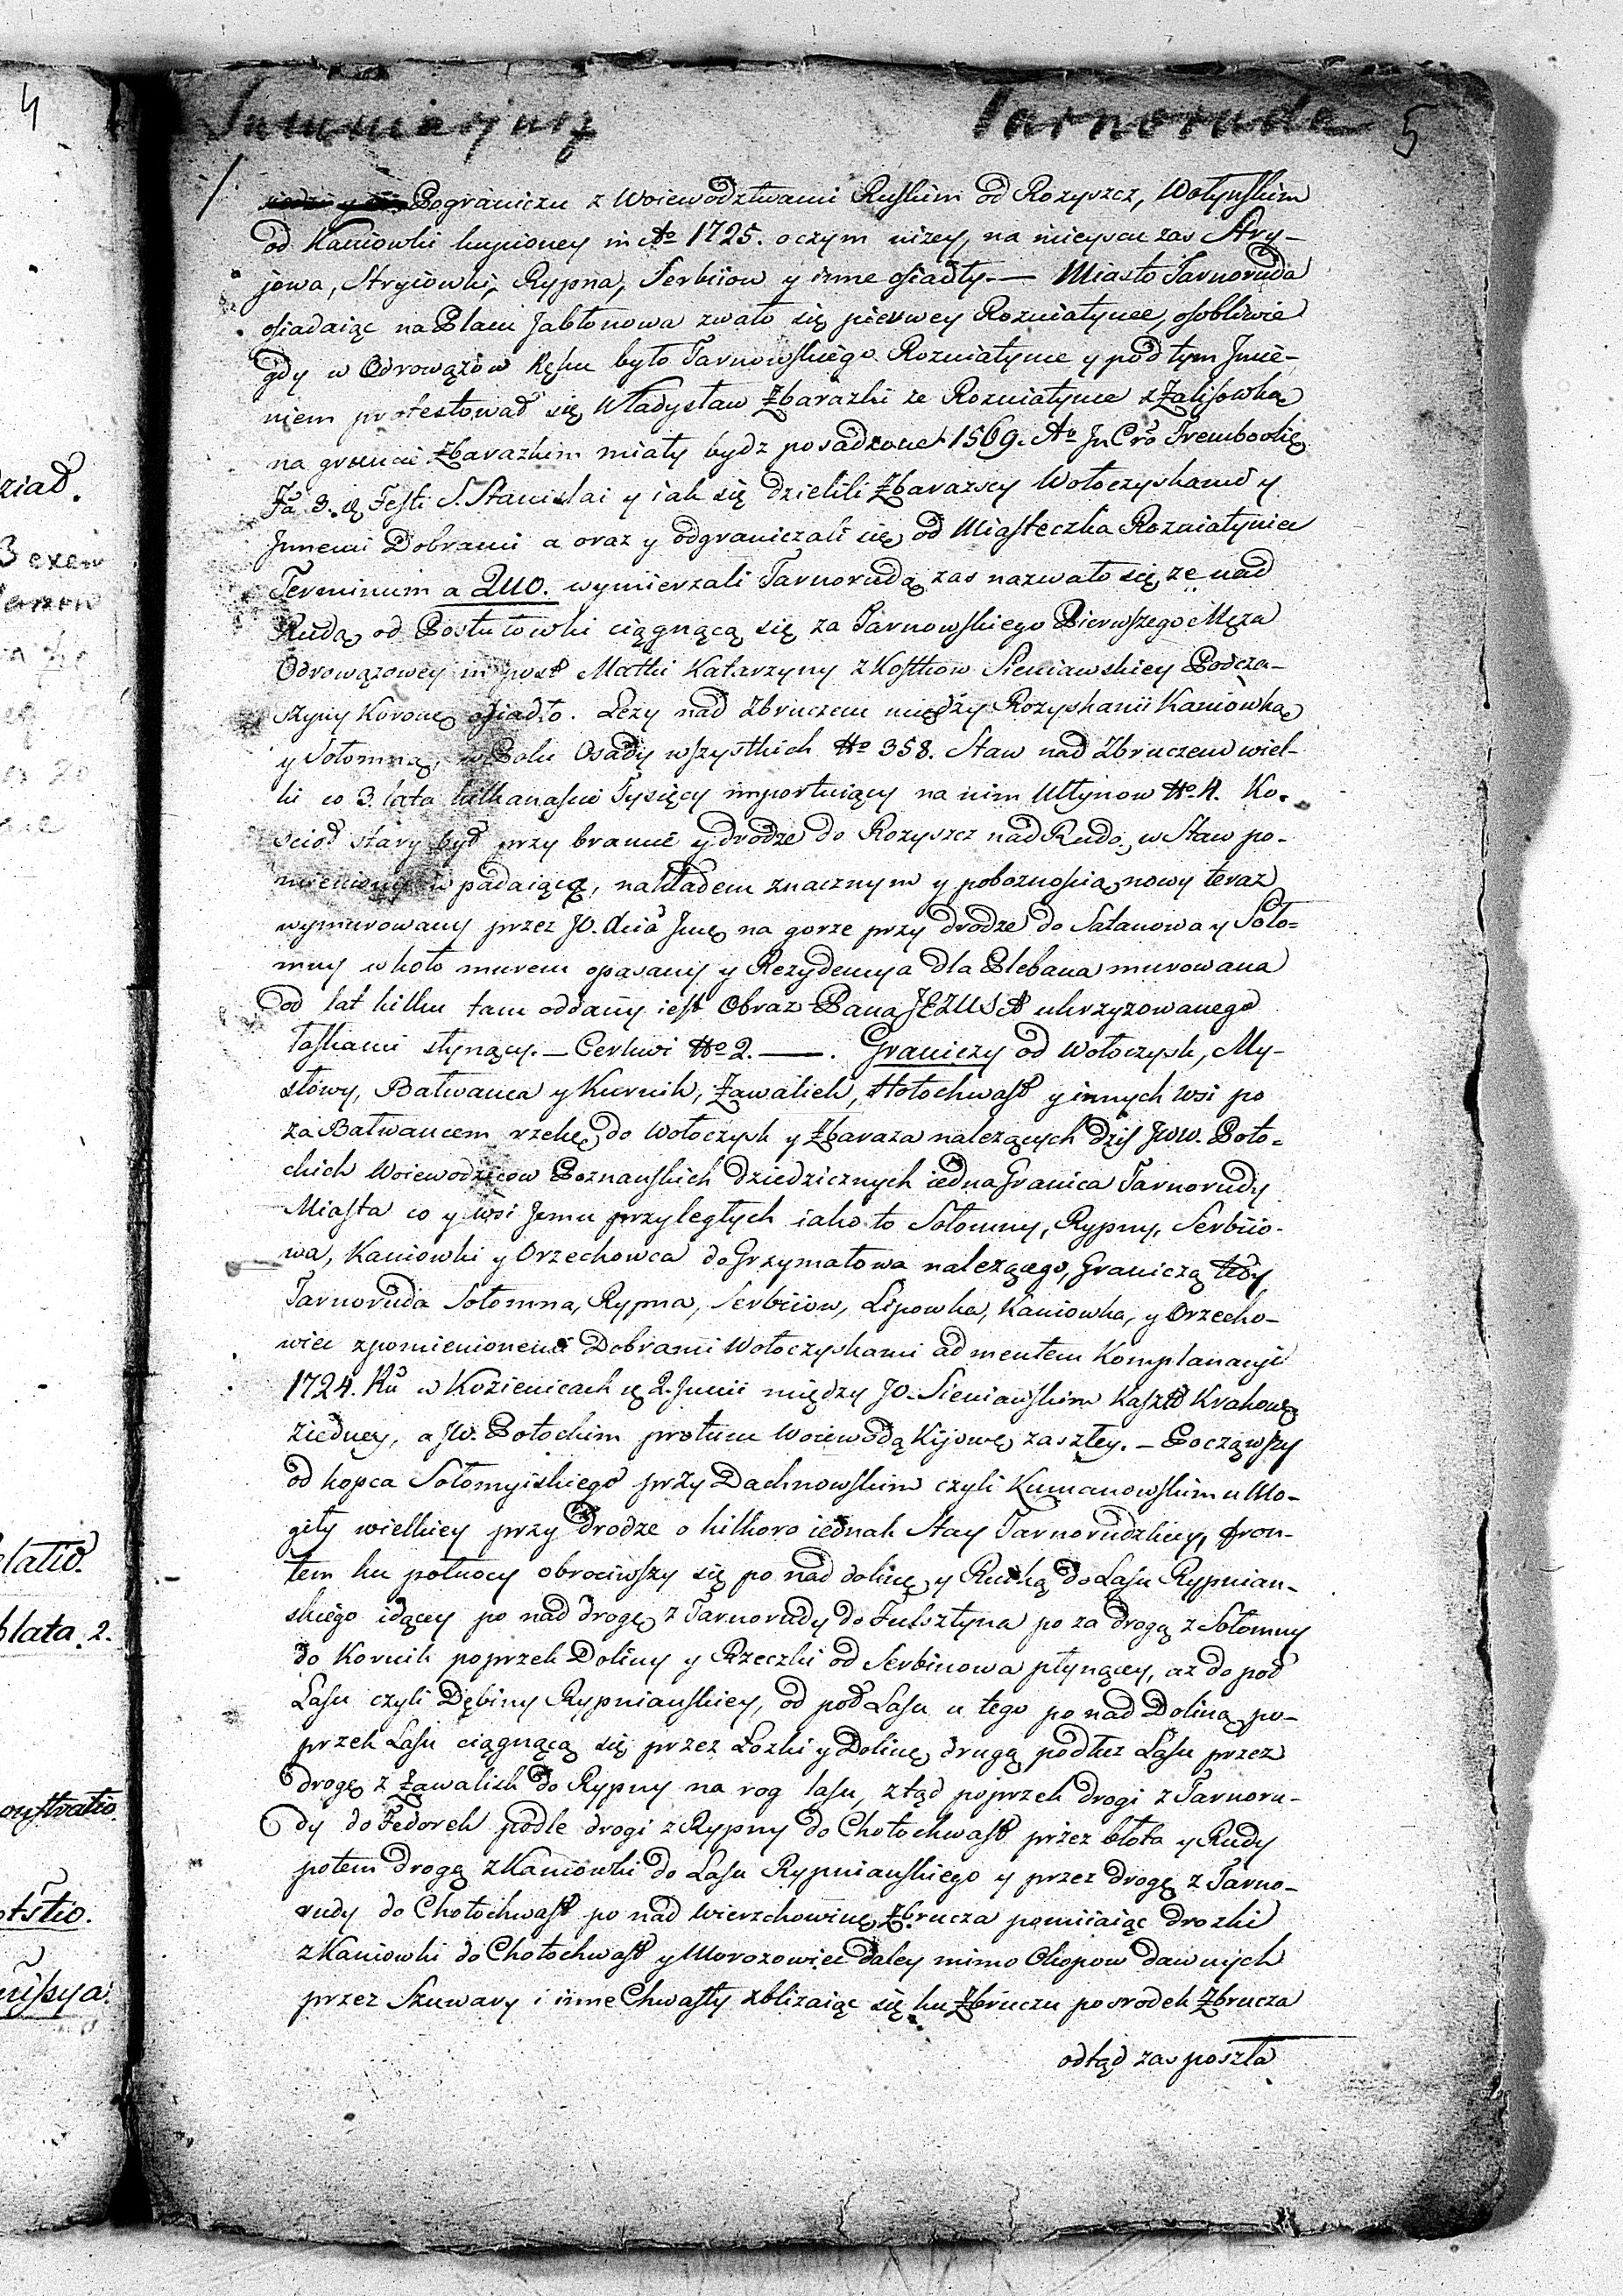 4
Summaryusz Tarnoruda 5
Pograniczu z Woiewodztwami Ruskim od Rozyszcz, Wołynskim
od Kaniowki kupioney in Aō 1725. o czym nizey, na mieyscu zas Stry-
jowa, Stryiowki, Rypna, Serbiiow y inne osiadły. — Miasto Tarnoruda
osiadaiąc na Placu Jabłonowa zwało się pierwey Rozniatynce, osobliwie
gdy w Odrowązow Ręku było Tarnowskiego Rozniatynce y pod tym Jmie-
niem protestował się Władysław Zbarazki ze Rozniatynce z Zalisowką
na gruncie Zbarazkim miały bydz posadzone 1569. Aō Jn Crō Trembovlię
Fã 3. ę Festi S. Stanislai y iak się dzielili Zbarazscy Wołoczyskami y
Jnnemi Dobrami a oraz y odgraniczali się od Miasteczka Rozniatyniec
Terminum a QUO. wymierzali Tarnorudą zas nazwało się, ze nad
Rudą od Postułowki ciągnącą się za Tarnowskiego Pierwszego Męza
Odrowązowey in post Matki Katarzyny z Kostkow Sieniawskiey Podcza-
szyny Koronę osiadło. Lezy nad Zbruczem między Rozyskami Kaniowką
y Sołomną, w Polu Osady wszystkich Nō 358. Staw nad Zbruczem wiel-
ki co 3. lata kilkanascie Tysięcy importuiący na nim Młynow Nō 4. Ko-
scioł stary był przy bramie y drodze do Rozyszcz nad Rudą, w Staw po-
mieniony wpadaiącą, nakładem znacznym y poboznoscią nowy teraz
wymurowany przez JO. Jmę na gorze przy drodze do Satanowa y Soło-
mny w koło murem opasany y Rezydencya dla Plebana murowana
od lat kilku tam oddany iest Obraz Pana JEZUSA ukrzyzowanego
łaskami słynący. — Cerkwi Nō 2. —. Graniczy od Wołoczysk, My-
słowy, Bałwanca y Kurnik, Zawalick, Hołochwast y innych Wsi po
za Bałwancem rzekę do Wołoczysk y Zbaraza nalezących dzis JWW. Poto-
ckich Woiewodzicow Poznanskich dziedzicznych iedna Granica Tarnorudy
Miasta co y Wsi Jemu przyległych iako to Sołomny, Rypny, Serbiio-
wa, Kaniowki y Orzechowca do Grzymałowa nalezącego, Graniczą tedy
Tarnoruda Sołomna, Rypna, Serbiiow, Lipowka, Kaniowka, y Orzecho-
wiec z pomienionemi Dobrami Wołoczyskami ad mentem Komplanacyi
1724. Rũ w Kozienicach ę 2. Junii między JO. Sieniawskim Kasztł Krakowę
ziedney, a JW. Potockim protunc Woiewodą Kijowę zaszłey. — Począwszy
od kopca Sołomyiskiego przy Dachnowskim czyli Kumanowskim u Mo-
giły wielkiey przy drodze o kilkoro iednak Stay Tarnorudzkiey, fron-
tem ku pułnocy obrociwszy się po nad dolinę y Ruczką do Lasu Rypnian-
skiego idącey po nad drogę z Tarnorudy do Fulsztyna po za drogą z Sołomny
do Kornik poprzek Doliny y Rzeczki od Serbinowa płynącey, az do pod
Lasu czyli Dębiny Rypnianskiey, od pod Lasu u tego po nad Doliną po-
przek Lasu ciągnącą się przez Łozki y Dolinę drugą podłuz Lasu przez
drogę z Zawalick do Rypny na rog lasu, ztąd poprzek drogi z Tarnoru-
dy do Fedorek podle drogi z Rypny do Chołochwast przez błota y Rudy
potem drogą z Kaniowki do Lasu Rypnianskiego y przez drogę z Tarno-
rudy do Chołochwast po nad Wierzchowinę Zbrucza pomiiaiąc drozki
z Kaniowki do Chołochwast y Morozowiec daley mimo Okopow dawnych
przez Szuwary i inne Chwasty zblizaiąc się ku Zbruczu posrodek Zbrucza
odtąd zas poszła